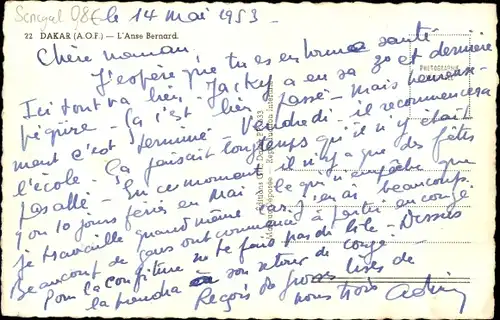 Senegal 08€
le 14 mai 1953 -
22 DAKAR (A.O.F.) — L'Anse Bernard.
Chère maman.
J'espère que tu es en bonne santé
Ici tout va bien. Jacky a eu sa 3e et dernière
piqûre - Ça s'est bien passé - mais heureuse-
ment c'est terminé. Vendredi il recommencera
l'école. Ça faisait longtemps qu'il n'y était
pas allé - En ce moment il n'y a que des fêtes
10 jours fériés en Mai ce qui n'empêche que
je travaille quand même car j'en ai beaucoup.
Beaucoup de gens ont commencé à partir en congé
Pour la confiture ne te fais pas de bile -
la prendra à son retour de congé -
Reçois de grosses bises de
nous trois